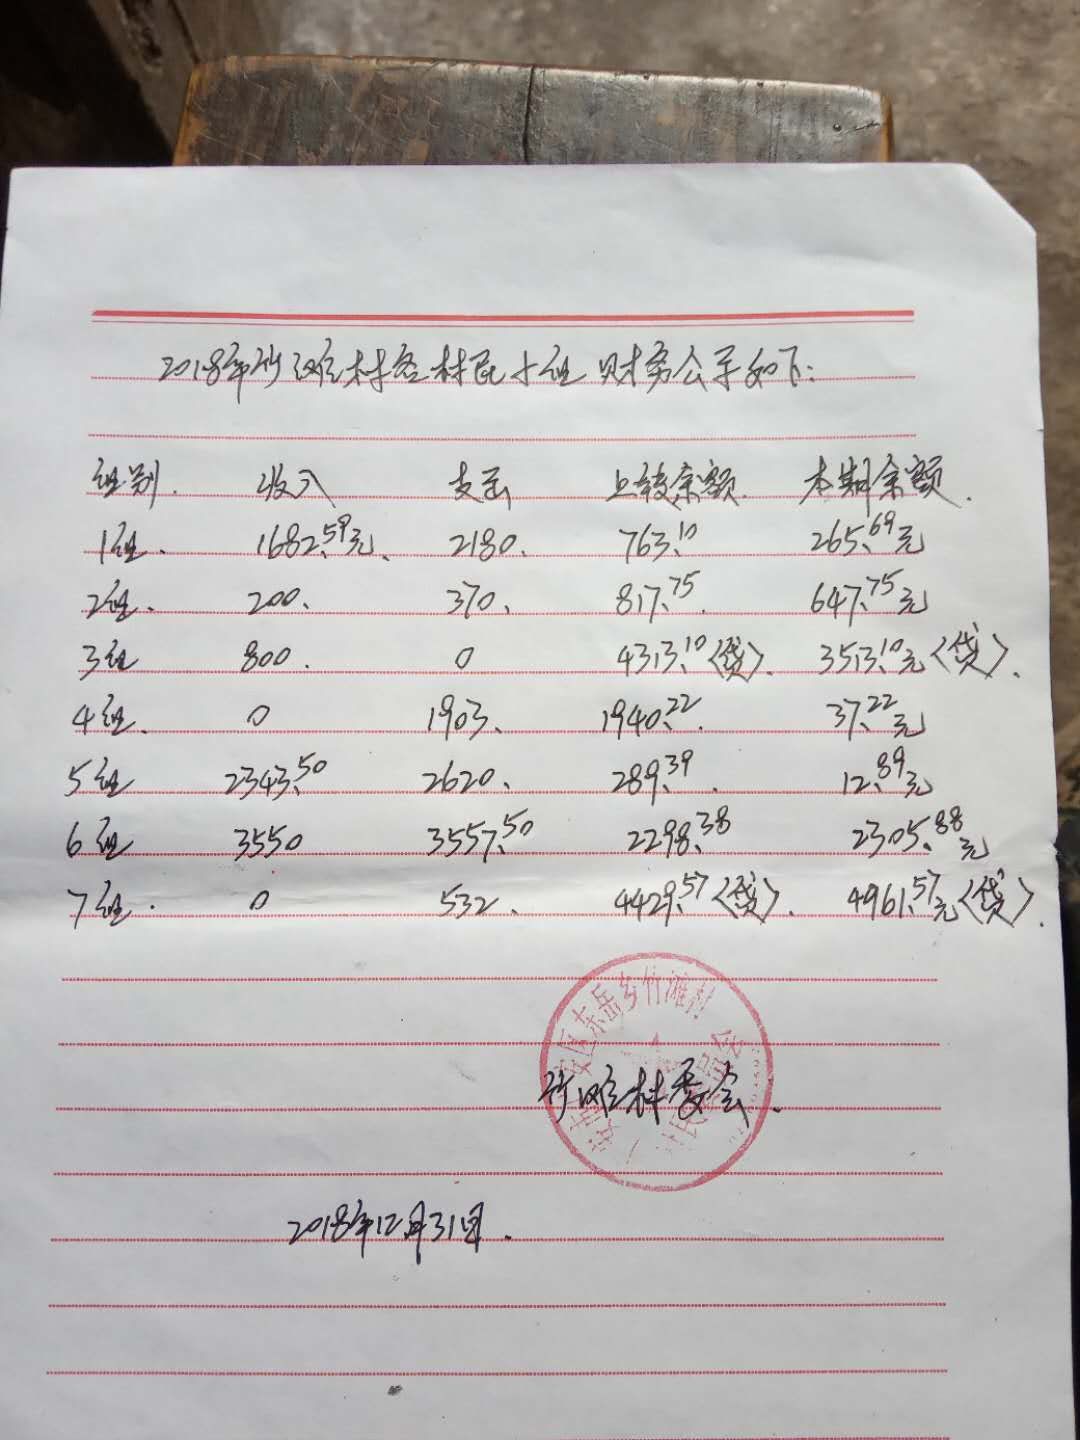 2018年竹滩村各村民小组财务公示如下:
组别. 收入 支出 上转余额. 本期余额.
1组. 1682.59元. 2180. 763.10 265.69元
2组. 200. 370. 817.75. 647.75元
3组 800. 0 4313.10<贷>. 3513.10元<贷>.
4组. 0 1903. 1940.22. 37.22元
5组 2343.50 2620. 289.39. 12.89元
6组 3550 3557.50 2298.38 2305.88元
7组. 0 532. 4429.57<贷>. 4961.57元<贷>.
区东岳乡竹滩村
竹滩村委会.
2018年12月31日.